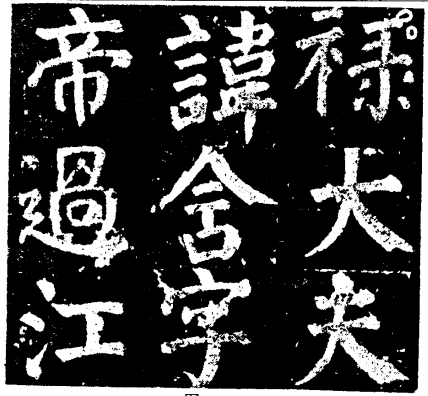 禄大夫
諱含字
帝過江